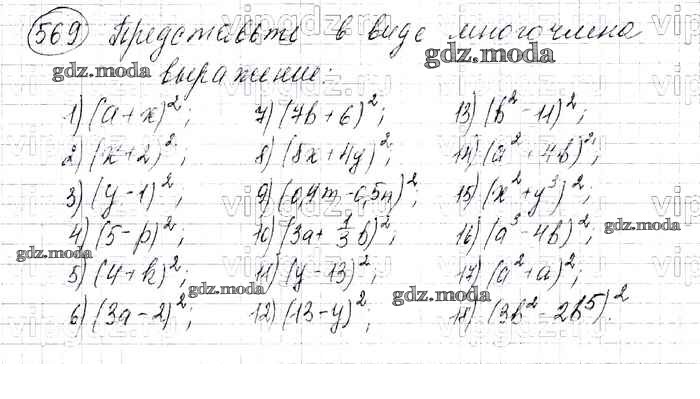 569 Представьте в виде многочлена
выражение:
1) (a + x)²; 7) (7b + 6)²; 13) (b² - 11)²;
2) (x + 2)²; 8) (8x + 4y)²; 14) (a² + 4b)²;
3) (y - 1)²; 9) (0,4m - 0,5n)²; 15) (x² + y³)²;
4) (5 - p)²; 10) (3a + 1/3 b)²; 16) (a³ - 4b)²;
5) (4 + k)²; 11) (y - 13)²; 17) (a² + a)²;
6) (3a - 2)²; 12) (-13 - y)²; 18) (3b² - 2b⁵)².
gdz.moda
gdz.moda
gdz.moda
gdz.moda
gdz.moda
gdz.moda
gdz.moda